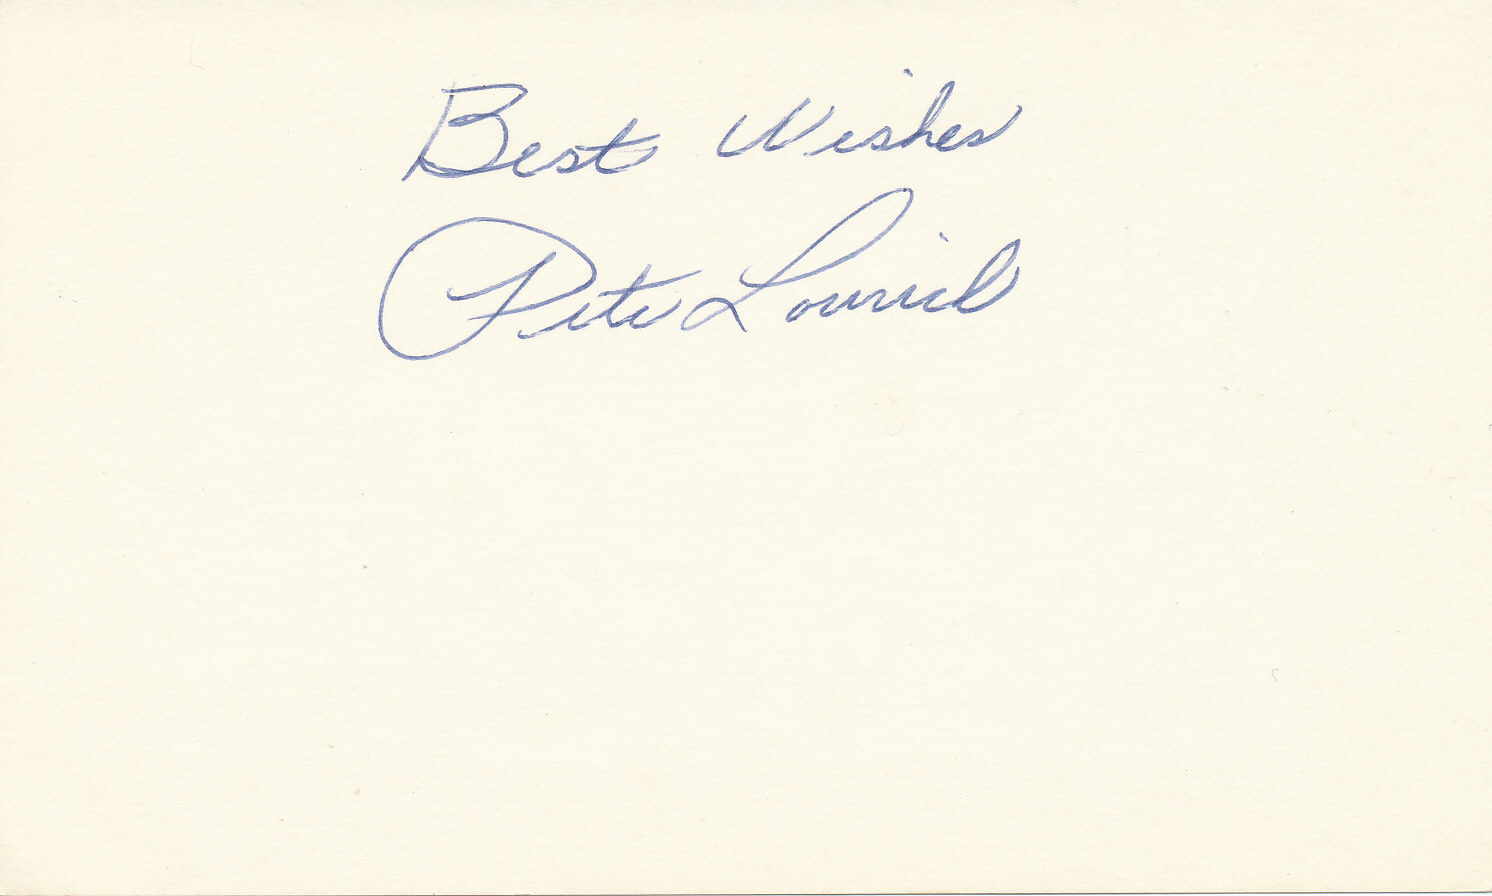 Best Wishes
Pete Lovrich